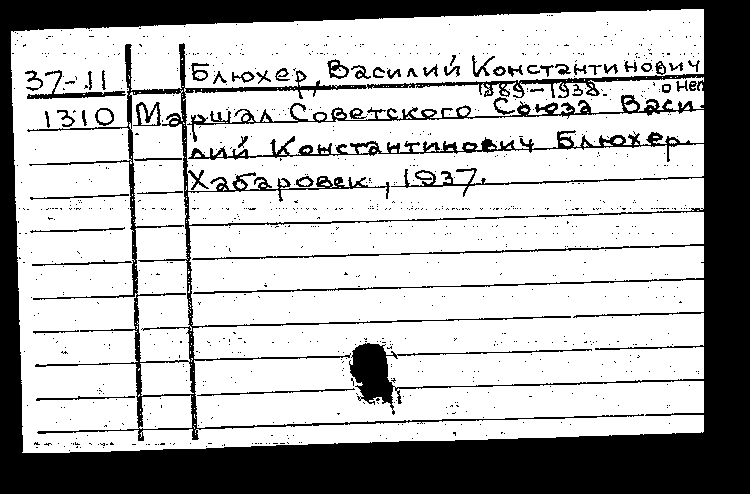 37-11 Блюхер, Василий Константинович
1889-1938. о нем
1310 Маршал Советского Союза Васи-
лий Константинович Блюхер.
Хабаровск, 1937.